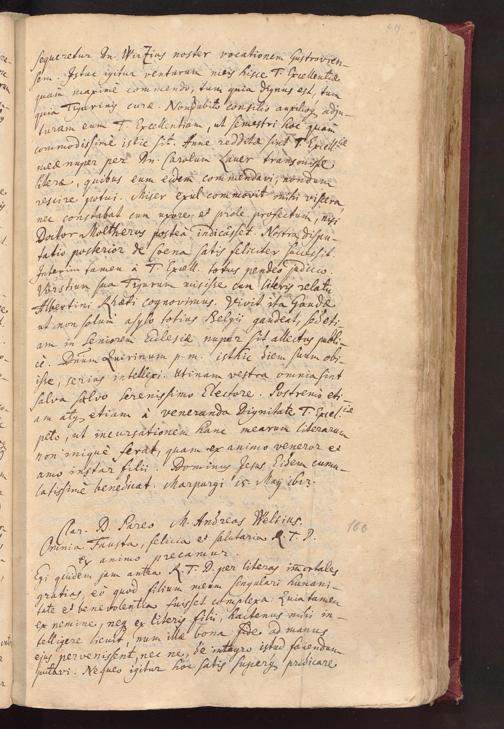 sequeretur Dn. Wirzius noster vocationem Gustrovien-
sem. Istuc igitur venturum meis hisce T. Excellentiæ
quàm maximè commendo, tum quia dignus est, tum
quia Tigurinis curæ. Non dubito consilio auxilioq adju-
turam eum T. Excellentiam, ut semestri hoc quam
commodissimè istic sit. Anne redditæ sint T. Excell.
meæ nuper per Dn. Carolum Laver transmissæ
literæ, quibus eum eidem commendavi, nondum
rescire potui. Miser exul commovit mihi viscera
nec constabat cum uxore et prole profectum, nisi
Doctor Moltherus postea indicasset. Nostra dispu-
tatio posterior de Coena satis feliciter successit.
Interim tamen à T. Excell. totus pendeo judicio.
Vorstium sua Tigurum misisse ex literis relatu
Albertini Rhæti cognovimus. Vivit ita Goudæ
ut non solum asylo totius Belgii gaudeat, sed eti-
am in seniorem Ecclesiæ nuper sit allectus publi-
cè. Dnum Quirinum p. m. isthic diem suum obi-
isse, serius intellexi. Utinam vestra omnia sint
salva salvo serenissimo Electore. Postremò eti-
am atq etiam à veneranda Dignitate T. Excell.
peto, ut incursationem hanc mearum literarum
non iniquè ferat, quam ex animo veneror et
amo instar filii. Dominus Jesus Eidem cumu-
latissimè benedicat. Marpurgi 15. Maij 1612.
Clar. D. Pareo M. Andreas Welsius.
Omnia Fausta, felicia et salutaria R. T. D.
ex animo precamur.
Egi quidem jam antea R. T. D. per literas immortales
gratias, eò quod filium meum singulari humani-
tate et benevolentia fuisset complexa: Quia tamen
ex nemine, neq ex literis filii, hactenus mihi in-
telligere licuit, num illæ bona fide ad manus
ejus pervenissent, nec ne, de integro istud faciendum
putavi. Nequeo igitur hoc satis superq prædicare
160